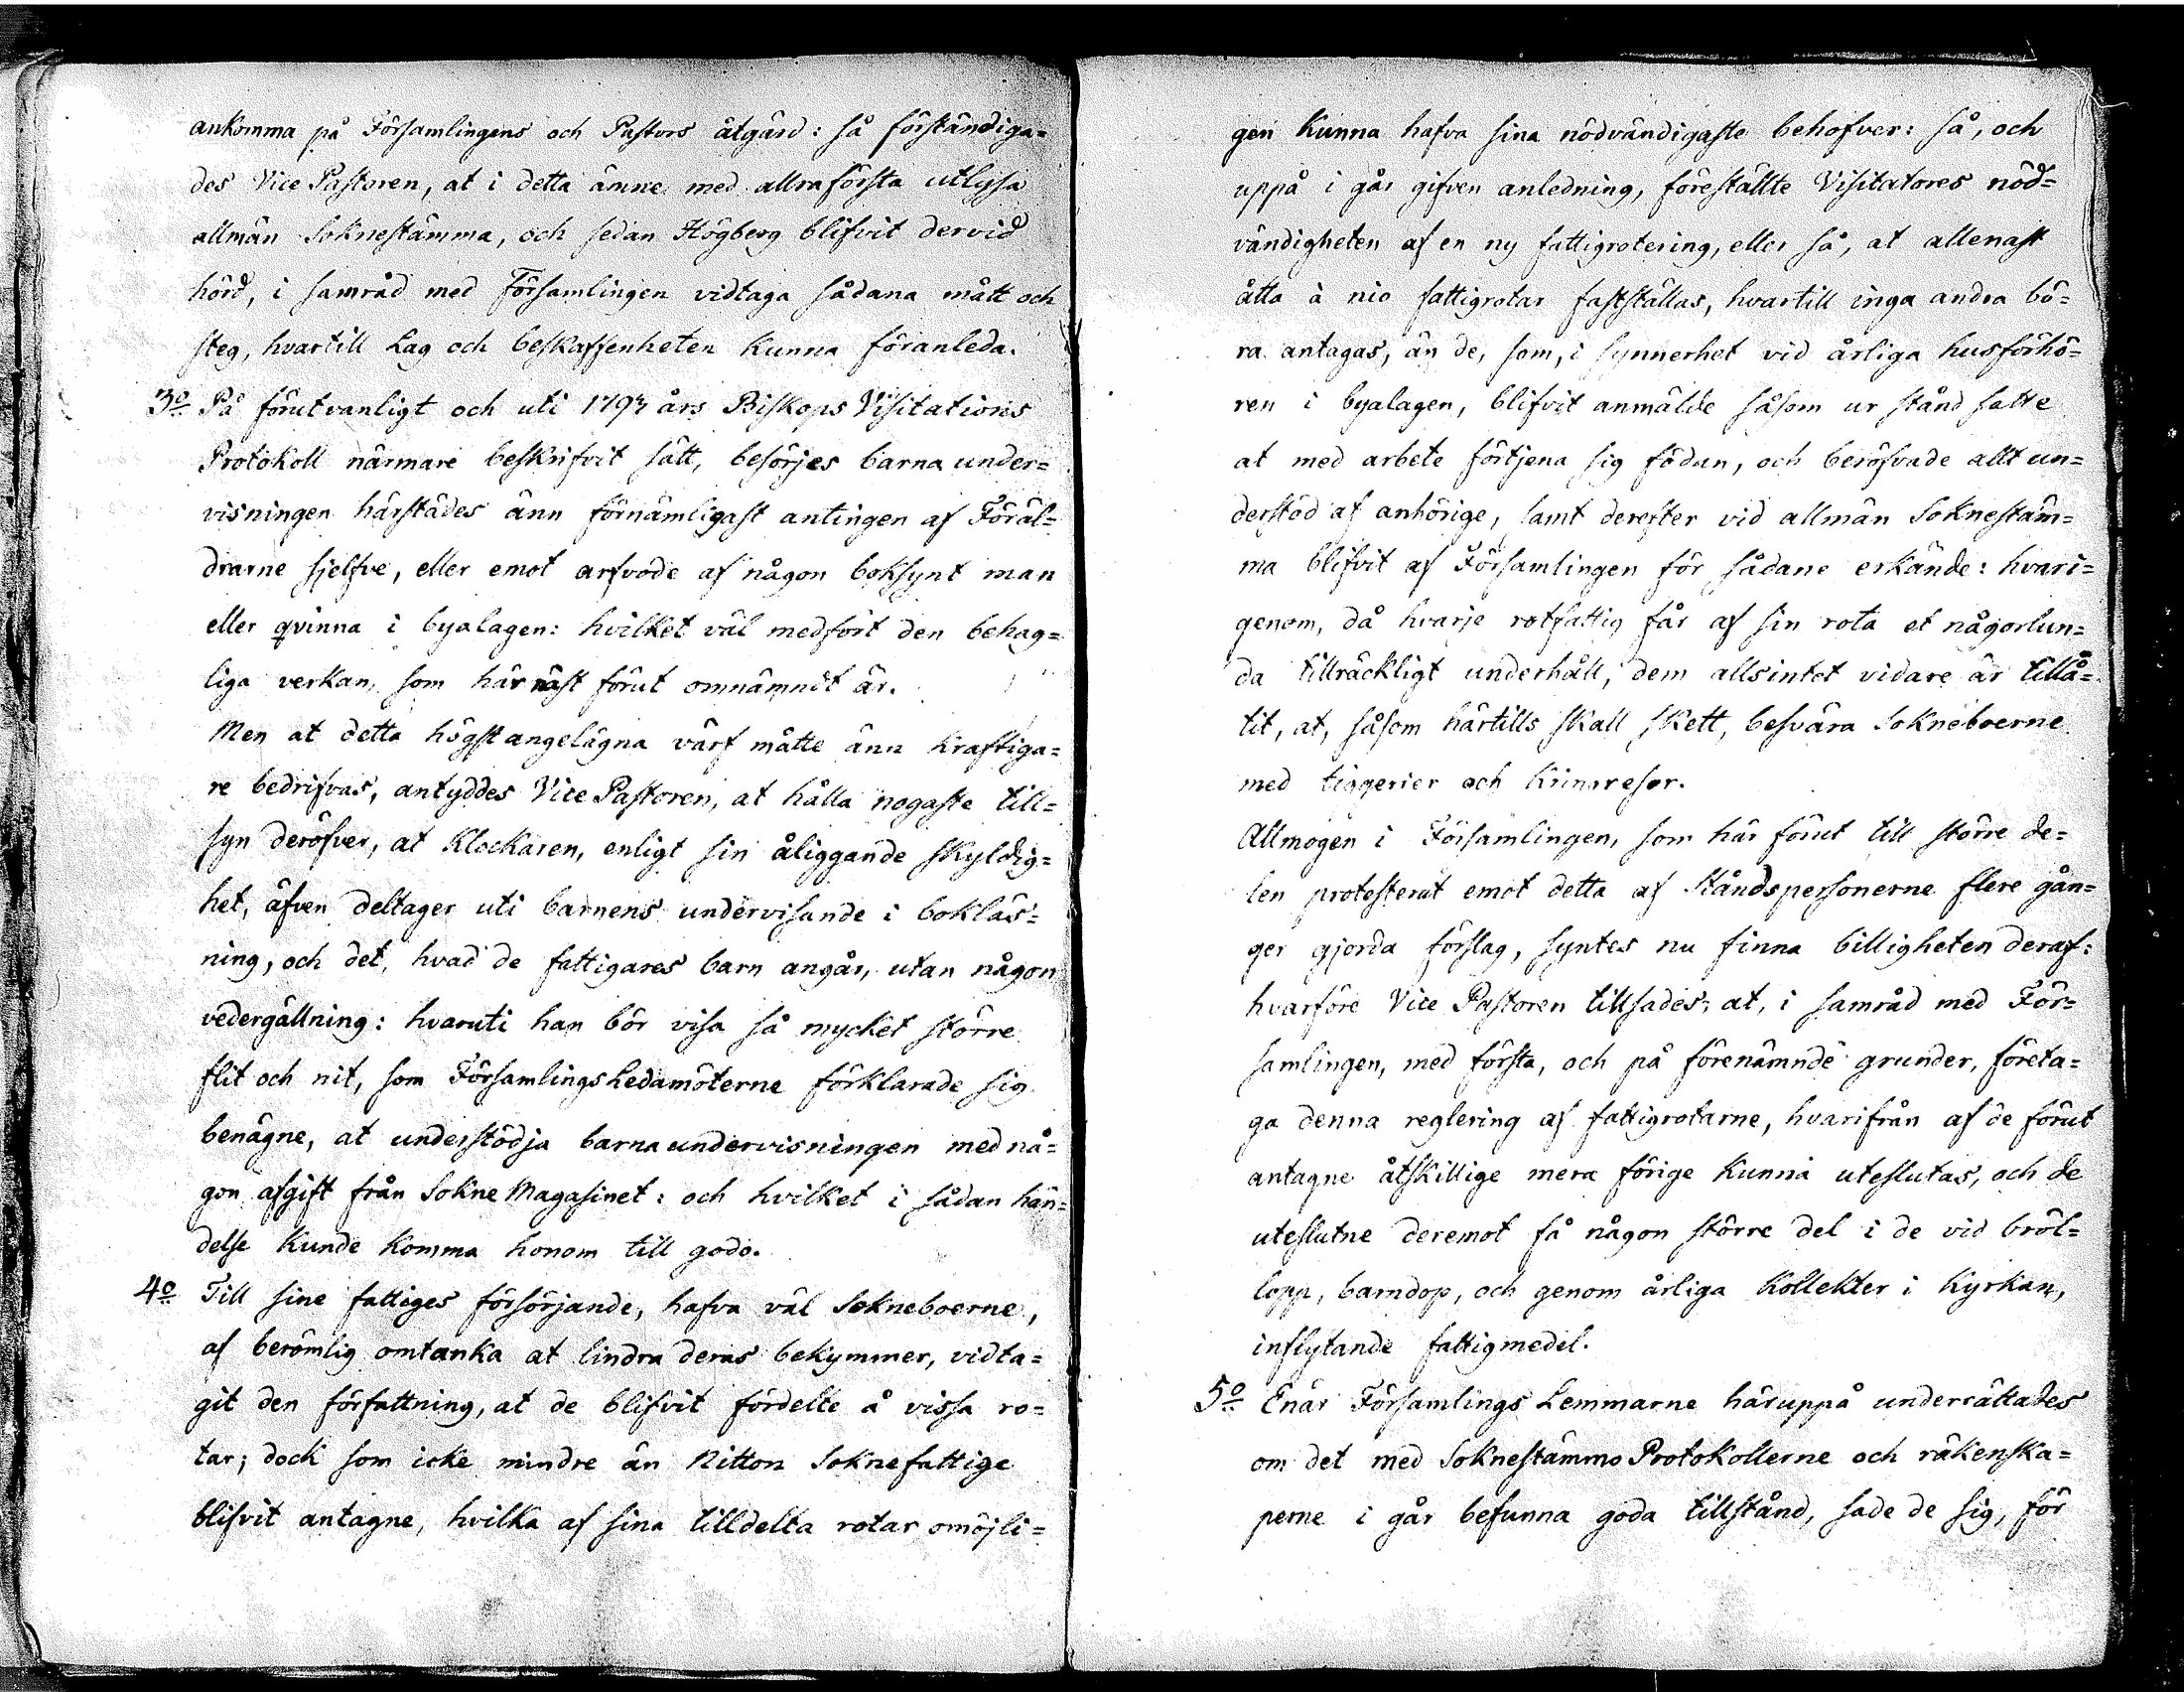 ankomma på Församlingens och Pastors åtgärd: så förständiga=
des Vice Pastoren, at i detta ämne med allraförsta utlysa
allmän Soknestämma, och sedan Högberg blifvit dervid
hörd, i samråd med Församlingen vidtaga sådana mått och
steg, hvartill Lag och beskaffenheten kunna föranleda.
3º På förutvanligt och uti 1797 års Biskops Visitations
Protokoll närmare beskrifvit sätt, besörjes barna under=
visningen härstädes änn förnämligast antingen af Föräl=
drarne sjelfve, eller emot arfvode af någon boksynt man
eller qvinna i byalagen: hvilket väl medfört den behag=
liga verkan, som här näst förut omnämndt är.
Men at detta högst angelägna värf måtte änn kraftiga=
re bedrifvas, antyddes Vice Pastoren, at hålla nogaste till=
syn deröfver, at Klockaren, enligt sin åliggande skyldig=
het, äfven deltager uti barnens undervisande i bokläs=
ning, och det, hvad de fattigares barn angår, utan någon
vedergällning: hvaruti han bör visa så mycket större
flit och nit, som Församlings Ledamöterne förklarade sig
benägne, at understödja barna undervisningen med nå=
gon afgift från Sokne Magasinet: och hvilket i sådan hän=
delse kunde komma honom till godo.
4º Till sine fattiges försörjande, hafva väl Sokneboerne,
af berömlig omtanka at lindra deras bekymmer, vidta=
git den författning, at de blifvit fördelte å vissa ro=
tar; dock som icke mindre än Nitton Soknefattige
blifvit antagne, hvilka af sina tilldelta rotar omöjli=
gen kunna hafva sina nödvändigaste behofver: så, och
uppå i går gifven anledning, föreställte Visitatores nöd=
vändigheten af en ny fattigrotering, eller så, at allenast
åtta à nio fattigrotar fastställas, hvartill inga andra bö=
ra antagas, än de, som, i synnerhet vid årliga husförhö=
ren i byalagen, blifvit anmälde såsom ur stånd satte
at med arbete förtjena sig födan, och beröfvade allt un=
derstöd af anhörige, samt derefter vid allmän Soknestäm=
ma blifvit af Församlingen för sådane erkände: hvari=
genom, då hvarje rotfattig får af sin rota et någorlun=
da tillräckligt underhåll, dem allsintet vidare är tillå=
tit, at, såsom härtills skall skett, besvära Sokneboerne
med tiggerier och kringresor.
Allmogen i Församlingen, som här förut till större de=
len protesterat emot detta af Ståndspersonerne flere gån=
ger gjorda förslag, syntes nu finna billigheten deraf:
hvarföre Vice Pastoren tillsades, at, i samråd med För=
samlingen, med första, och på förenämnde grunder, företa=
ga denna reglering af fattigrotarne, hvarifrån af de förut
antagne åtskillige mera förige kunna uteslutas, och de
uteslutne deremot få någon större del i de vid bröl=
lopp, barndop, och genom årliga Kollekter i Kyrkan,
inflytande fattigmedel.
5º Enär Församlings Lemmarne häruppå underrättades
om det med Soknestämmo Protokollerne och räkenska=
perne i går befunna goda tillstånd, sade de sig, för